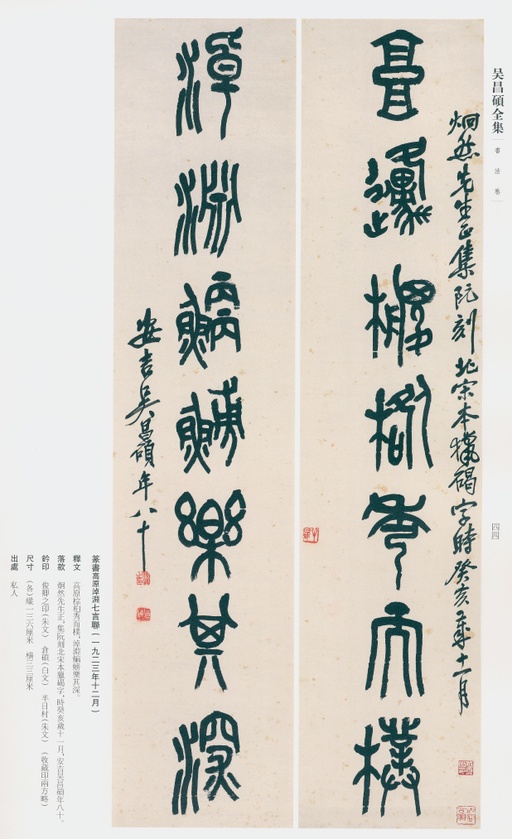 吴昌碩全集 書法卷
四四
炯然先生正集阮刻北宋本獵碣字時癸亥歲十一月
高原棕柏秀而樸
淖淵鯿鱄樂其深
安吉吴昌碩年八十
篆書高原淖淵七言聯(一九二三年十二月)
釋文 高原棕柏秀而樸,淖淵鯿鱄樂其深。
落款 炯然先生正,集阮刻北宋本獵碣字,時癸亥歲十一月,安吉吴昌碩年八十。
鈐印 俊卿之印(朱文) 倉碩(白文) 半日村(朱文) (收藏印兩方略)
尺寸 (各)縱一三六厘米 橫三三厘米
出處 私人